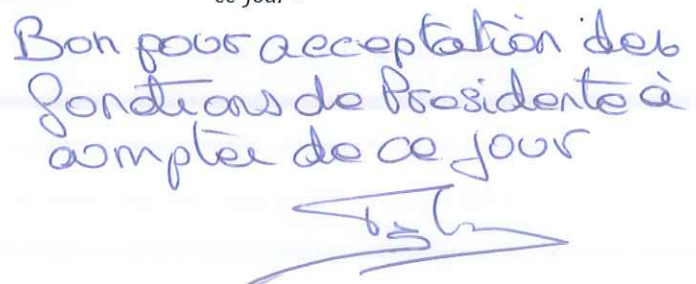 ce jour
Bon pour acceptation des
fonctions de Presidente à
compter de ce jour